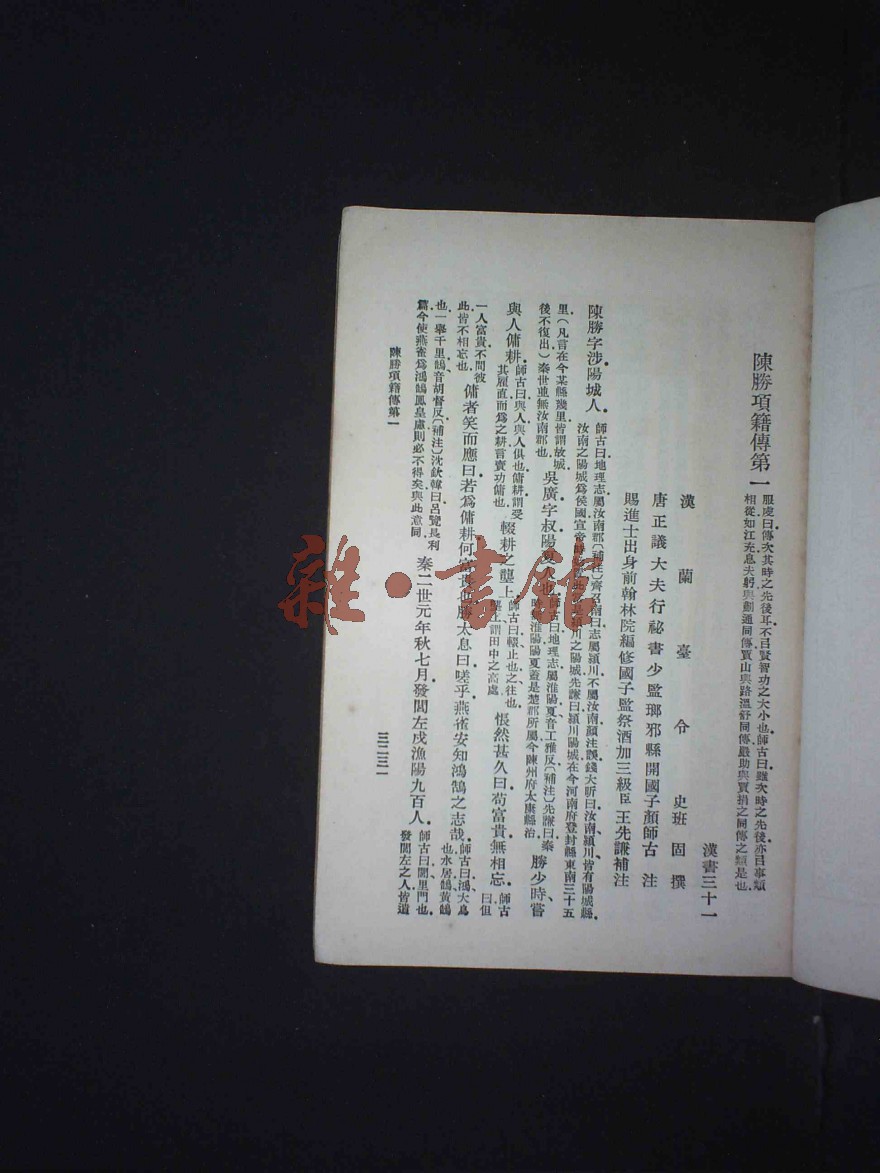 陳勝項籍傳第一
服虔曰傳次其時之先後耳不㠯賢智功之大小也師古曰雖次時之先後亦㠯事類
相從如江充息夫躬與蒯通同傳賈山與路溫舒同傳嚴助與賈捐之同傳之類是也
漢書三十一
漢蘭臺令史班固撰
唐正議大夫行祕書少監琅邪縣開國子顏師古注
賜進士出身前翰林院編修國子監祭酒加三級臣王先謙補注
陳勝字涉陽城人
師古曰地理志屬汝南郡〔補注〕齊召南曰志屬潁川不屬汝南顏注誤錢大昕曰汝南潁川皆有陽城縣
汝南之陽城爲侯國宣帝時潁川之陽城先謙曰潁川陽城在今河南府登封縣東南三十五
里(凡言在今某縣幾里皆謂故城
後不復出)秦世並無汝南郡也
吳廣字叔陽夏人也
師古曰地理志屬淮陽夏音工雅反〔補注〕先謙曰秦
淮陽陽夏蓋是楚郡所屬今陳州府太康縣治
勝少時嘗
與人傭耕
師古曰與人與人俱也傭耕謂受
其雇直而爲之耕言賣功傭也
輟耕之壟上
師古曰輟止也之往也
壟上謂田中之高處
悵然甚久曰苟富貴無相忘
師古
曰但
一人富貴不問彼
此皆不相忘也
傭者笑而應曰若爲傭耕何富貴也勝太息曰嗟乎燕雀安知鴻鵠之志哉
師古曰鴻大鳥
也水居鵠黃鵠
也一舉千里鵠音胡督反〔補注〕沈欽韓曰呂覽長利
篇今使燕雀爲鴻鵠鳳皇慮則必不得矣與此意同
秦二世元年秋七月發閭左戍漁陽九百人
師古曰閭里門也
發閭左之人皆遣
陳勝項籍傳第一
三二三一
雜·書館